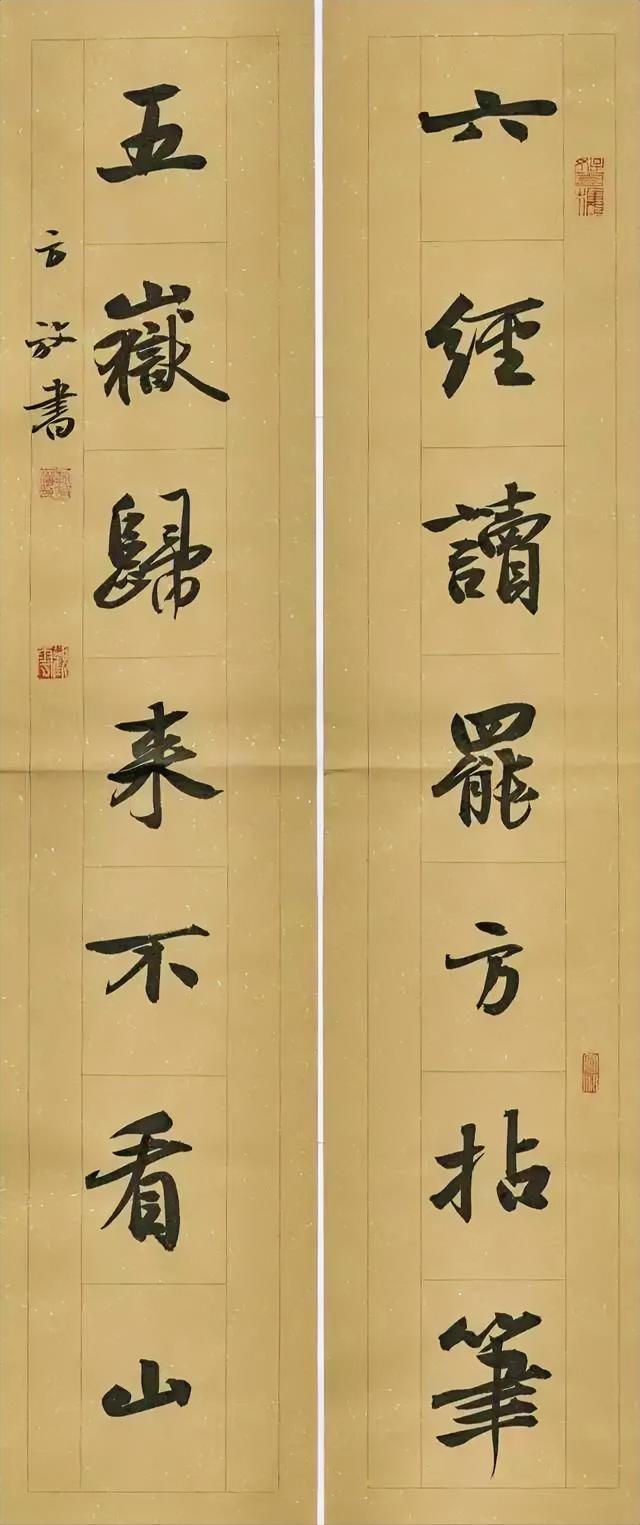 六經讀罷方拈筆
五嶽歸来不看山
方放書